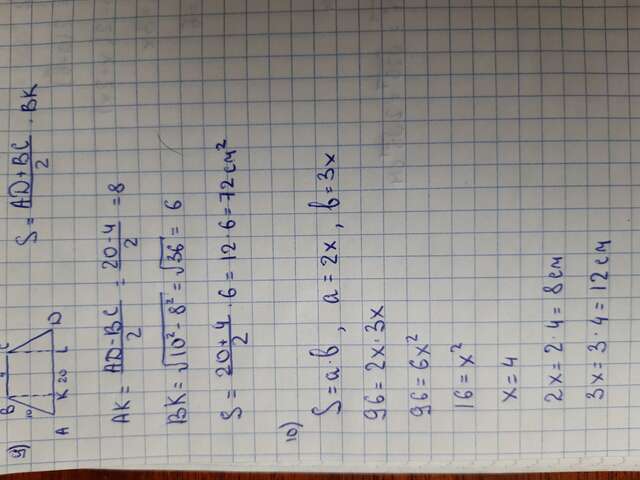 9)
B 4 C
10
A K 20 L D
S = (AD+BC)/2 · BK
AK = (AD-BC)/2 = (20-4)/2 = 8
BK = √(10²-8²) = √36 = 6
S = (20+4)/2 · 6 = 12·6 = 72 см²
10)
S = a·b, a = 2x, b = 3x
96 = 2x·3x
96 = 6x²
16 = x²
x = 4
2x = 2·4 = 8 см
3x = 3·4 = 12 см